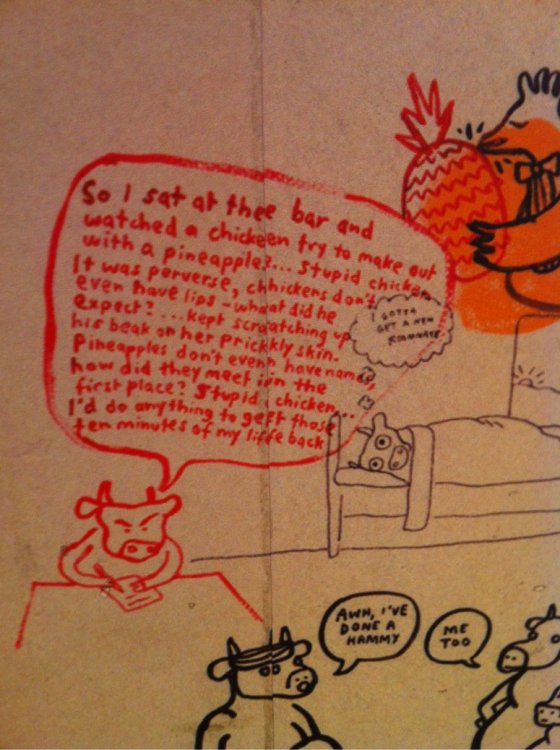 So I sat at thee bar and
watched a chickeen try to make out
with a pineapple?... Stupid chicken
It was perverse, chhickens don't
even have lips - whaat did he
expect? ...kept scraatching up
his beak on her prickkly skin.
Pineapples don't evenn have names,
how did they meet iin the
first place? Stupid chicken...
I'd do anything to geft those
ten minutes of my liffe back
I GOTTA
GET A NEW
ROOMMATE
AWH, I'VE
DONE A
HAMMY
ME
TOO